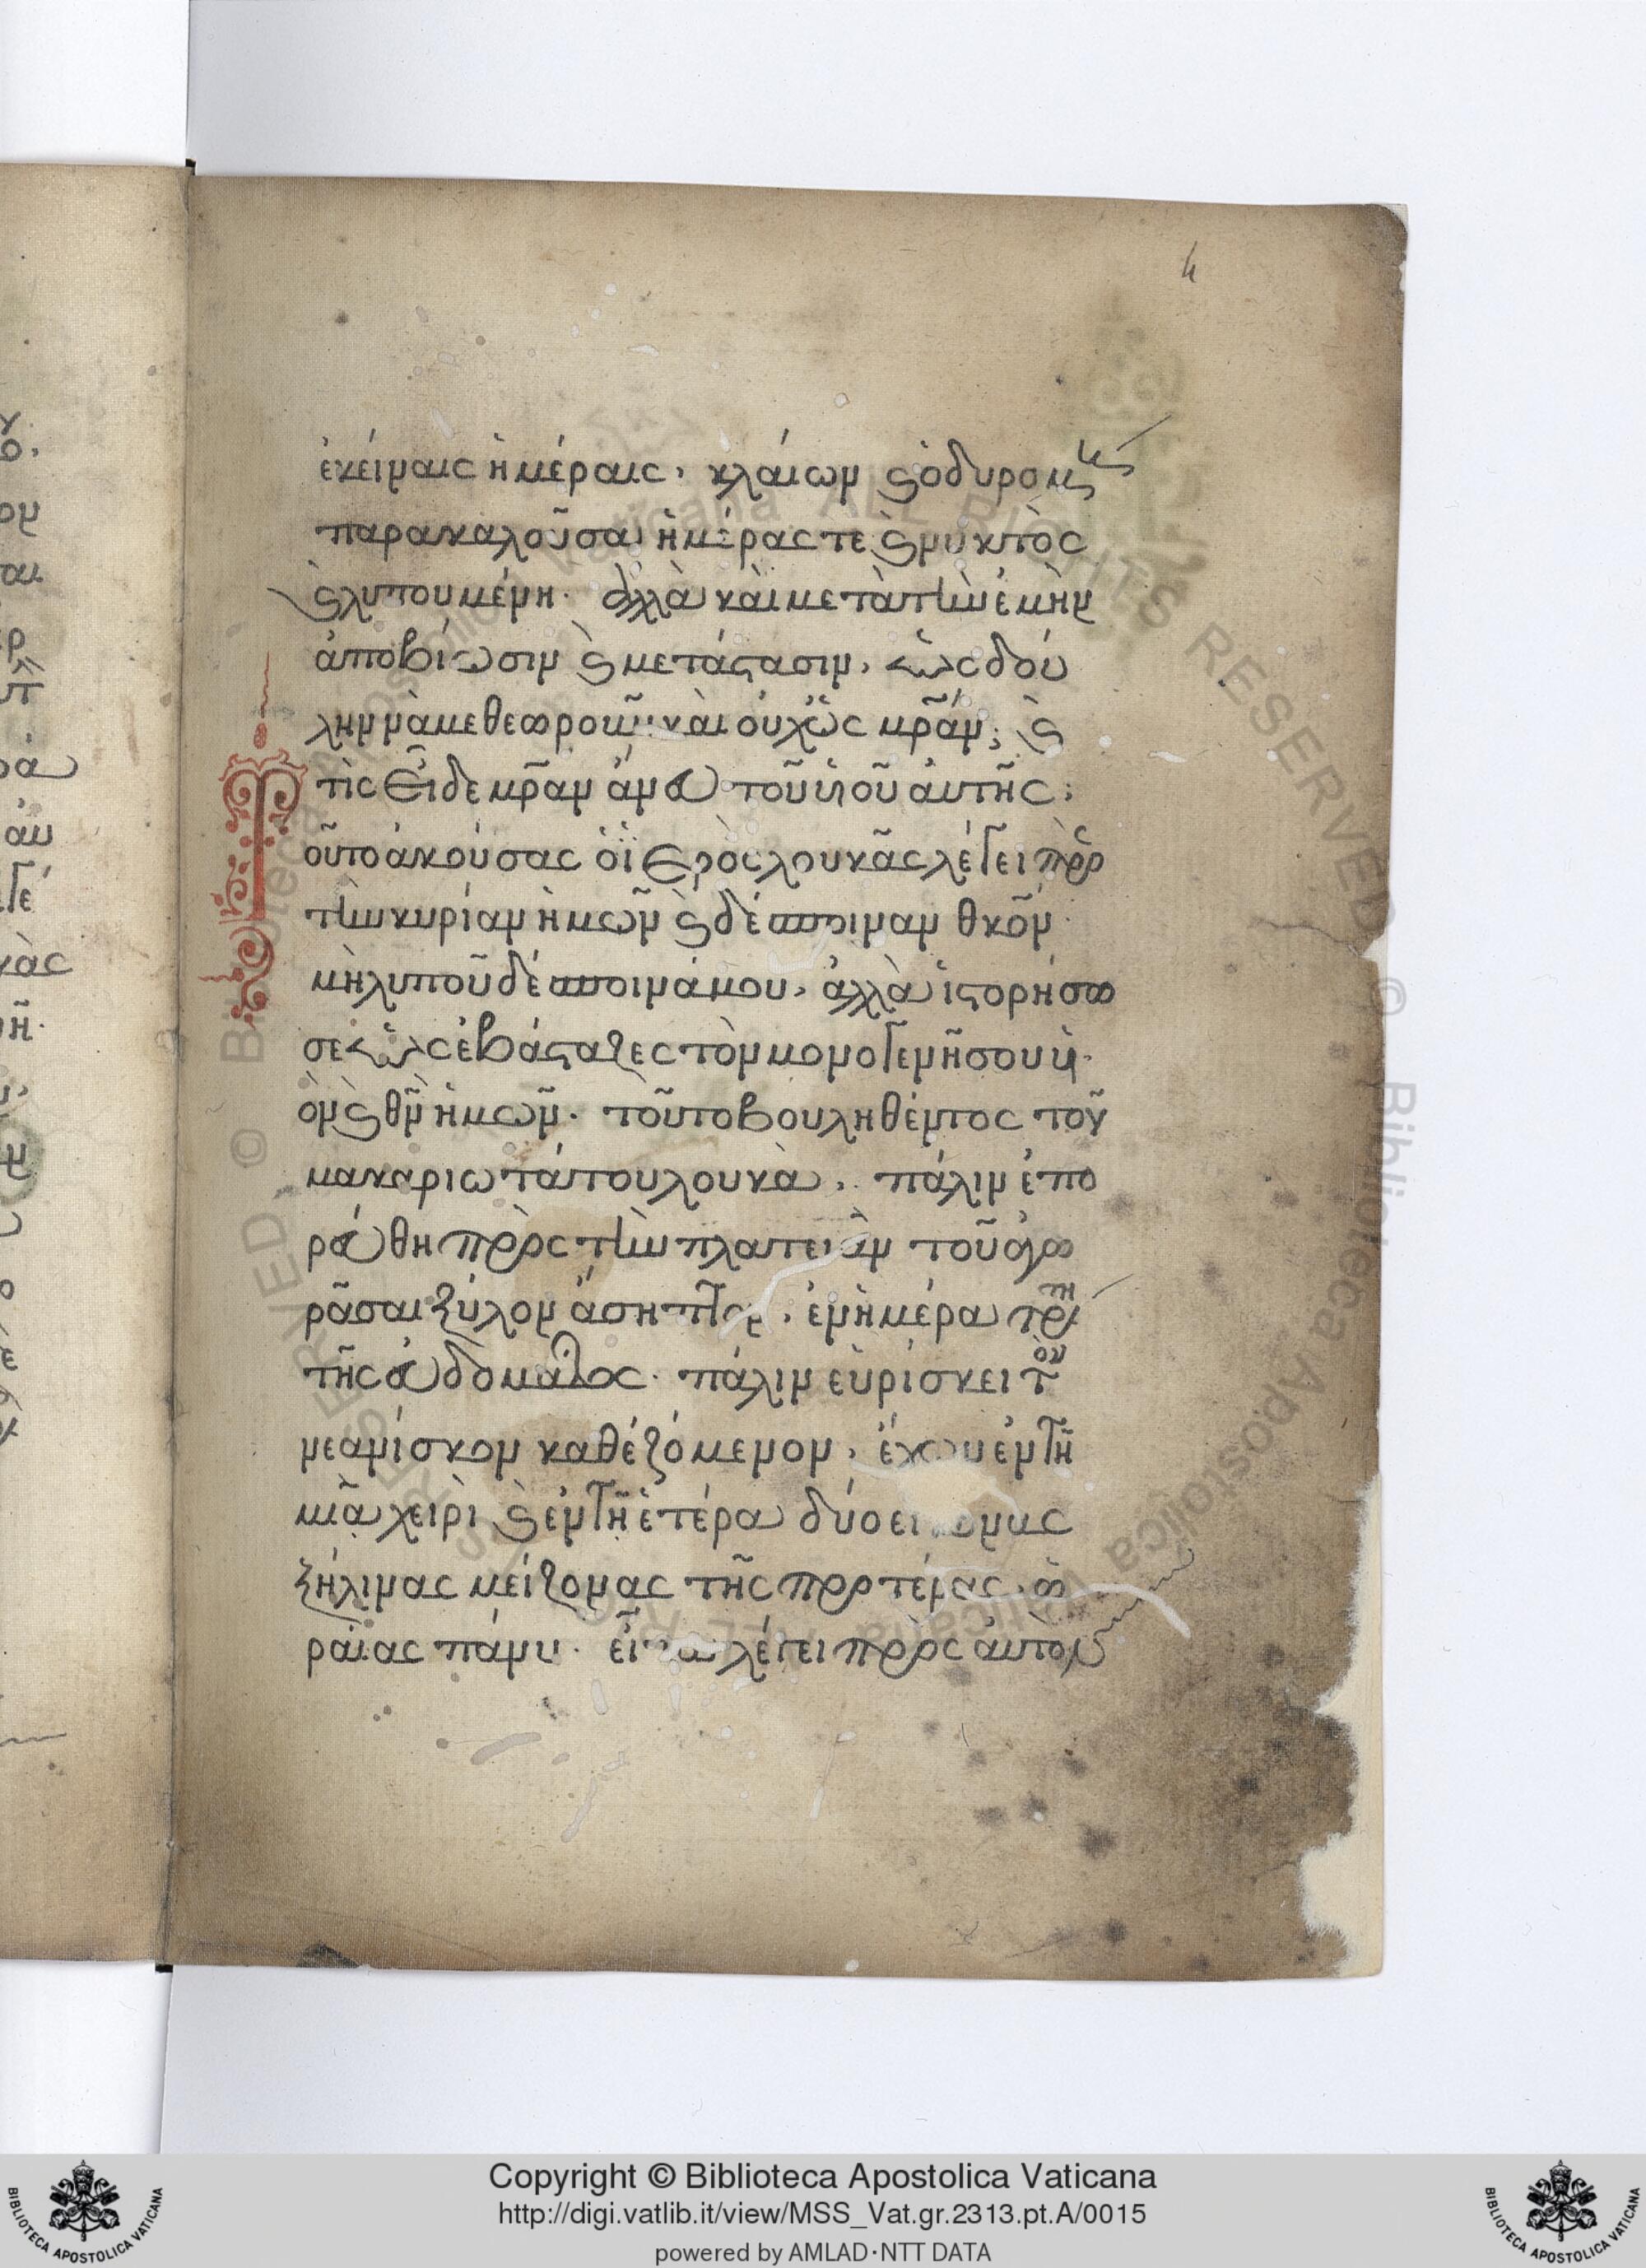 4
ἐκείναις ἡμέραις, κλαίων καὶ ὀδυρομ
παρακαλοῦσα ἡμέρας τὲ καὶ νυκτὸς
καὶ λυπουμένη. ἀλλὰ καὶ μετὰ τὴν ἐμὴν
ἀποβίωσιν καὶ μετάστασιν, δού
λην νὰ με θεωροῦν καὶ οὐχ ὡς μρᾶν; καὶ
τίς εἶδε μρᾶν ἄνευ τοῦ υἱοῦ αὐτῆς;
τοῦτο ἀκούσας ὁ ϊερὸς λουκᾶς λέγει πρὸς
τὴν κυρίαν ἡμῶν καὶ δέσποιναν θκον.
μὴ λυποῦ δέσποινά μου, ἀλλὰ ἱστορήσω
σε ὡς ἐβάσταζες τὸν μονογενῆ σου υἱ
ὸν καὶ θν ἡμῶν. τοῦτο βουληθέντος τοῦ
μακαριωτάτου λουκᾶ, πάλιν ἐπο
ρεύθη πρὸς τὴν πλατειὰν τοῦ ἀγο
ρᾶσαι ξύλον ἄσηπτον, ἐν ἡμέρα τρίτη
τῆς εὐδομάδος. πάλιν εὑρίσκει τὸν
νεανίσκον καθεζόμενον, ἔχων ἐν τῆ
μιᾶ χειρὶ καὶ ἐν τῆ ἑτέρα δύο εἰκόνας
ξηλίνας μείζονας τῆς προτέρας, ὡ
ραίας πάνυ. εἶτα λέγει πρὸς αὐτὸν
Copyright © Biblioteca Apostolica Vaticana
http://digi.vatlib.it/view/MSS_Vat.gr.2313.pt.A/0015
powered by AMLAD·NTT DATA
BIBLIOTECA APOSTOLICA VATICANA
BIBLIOTECA APOSTOLICA VATICANA